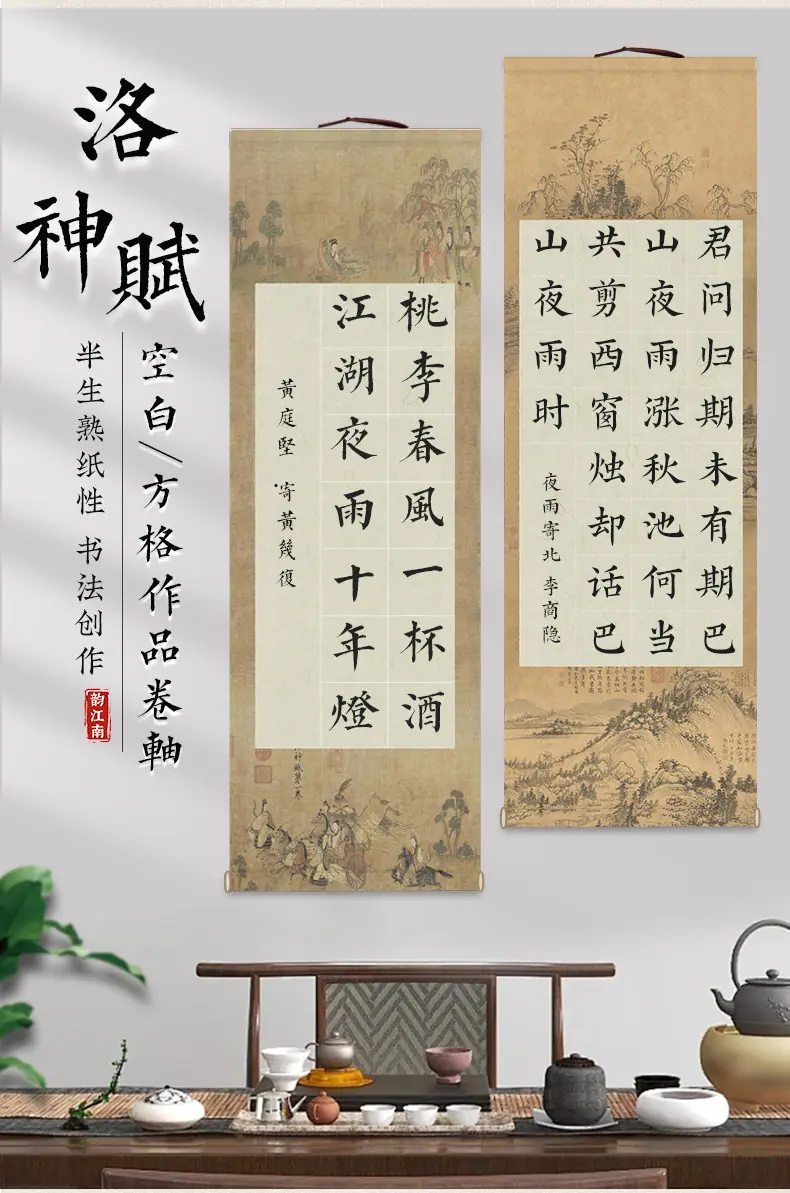 洛
神賦
空白//方格作品卷軸
半生熟纸性 书法创作
韵江南
桃李春風一杯酒
江湖夜雨十年燈
黃庭堅·寄黃幾復
君问归期未有期巴
山夜雨涨秋池何当
共剪西窗烛却话巴
山夜雨时
夜雨寄北 李商隐
神賦第一卷